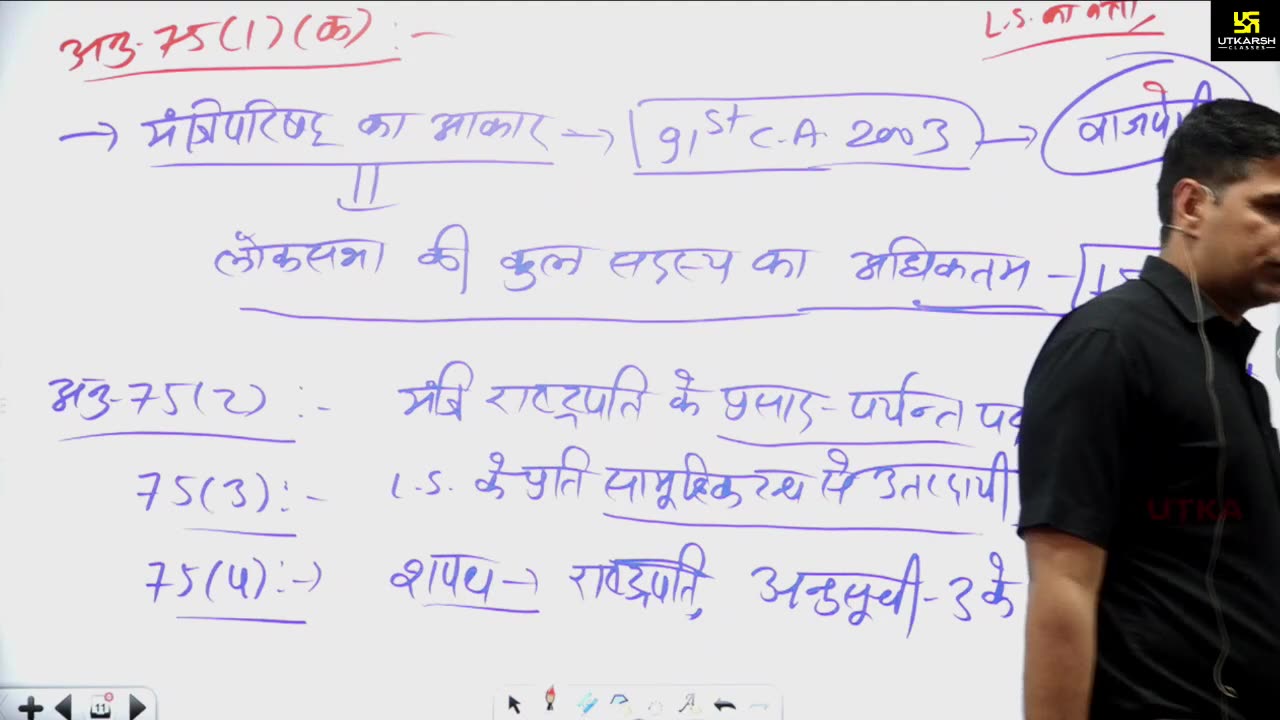 L.S. का नेता
UTKARSH
CLASSES
अनु.75(1)(क):-
→ मंत्रिपरिषद् का आकार → 91st C.A. 2003 →
लोकसभा की कुल सदस्य का अधिकतम -
अनु.75(2) :- मंत्रि राष्ट्रपति के प्रसाद-पर्यन्त पद
75(3):- L.S. के प्रति सामूहिक रूप से उत्तरदायी
75(4):→ शपथ → राष्ट्रपति, अनुसूची-3 के
UTKA
11